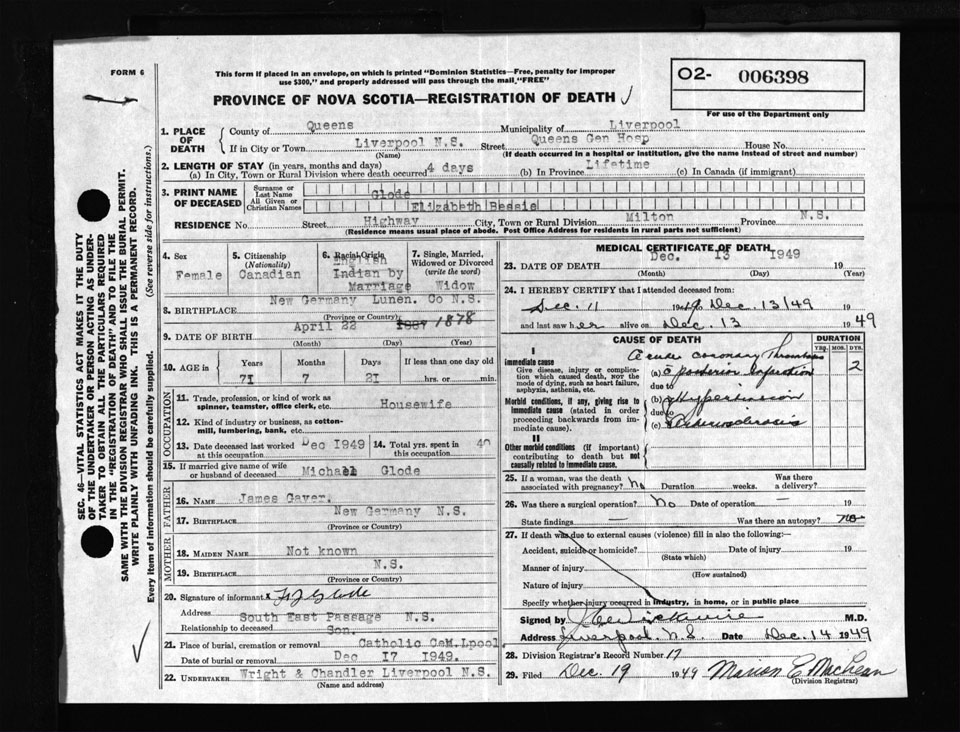 FORM 6
This form if placed in an envelope, on which is printed "Dominion Statistics—Free, penalty for improper
use $300," and properly addressed will pass through the mail, "FREE"
O2- 006398
For use of the Department only
PROVINCE OF NOVA SCOTIA—REGISTRATION OF DEATH
SEC. 46—VITAL STATISTICS ACT MAKES IT THE DUTY
OF THE UNDERTAKER OR PERSON ACTING AS UNDER-
TAKER TO OBTAIN ALL THE PARTICULARS REQUIRED
IN THE "REGISTRATION OF DEATH" AND TO FILE THE
SAME WITH THE DIVISION REGISTRAR WHO SHALL ISSUE THE BURIAL PERMIT.
WRITE PLAINLY WITH UNFADING INK. THIS IS A PERMANENT RECORD.
Every item of information should be carefully supplied. (See reverse side for instructions.)
1. PLACE OF DEATH
County of Queens Municipality of Liverpool
If in City or Town Liverpool N.S. Street Queens Gen Hosp House No.
(Name) (If death occurred in a hospital or institution, give the name instead of street and number)
2. LENGTH OF STAY (in years, months and days)
(a) In City, Town or Rural Division where death occurred 4 days (b) In Province Lifetime (c) In Canada (if immigrant)
3. PRINT NAME OF DECEASED
Surname or Last Name Glode
All Given or Christian Names Elizabeth Bessie
RESIDENCE No. Street Highway City, Town or Rural Division Milton Province N.S.
(Residence means usual place of abode. Post Office Address for residents in rural parts not sufficient)
4. Sex Female
5. Citizenship (Nationality) Canadian
6. Racial Origin English Indian by Marriage
7. Single, Married, Widowed or Divorced (write the word) Widow
8. BIRTHPLACE New Germany Lunen. Co N.S.
(Province or Country)
9. DATE OF BIRTH April 22 1887 1878
(Month) (Day) (Year)
10. AGE in Years Months Days If less than one day old
71 7 21 hrs. or min.
OCCUPATION
11. Trade, profession, or kind of work as
spinner, teamster, office clerk, etc. Housewife
12. Kind of industry or business, as cotton-
mill, lumbering, bank, etc.
13. Date deceased last worked at this occupation Dec 1949
14. Total yrs. spent in this occupation 40
15. If married give name of wife
or husband of deceased Michael Glode
FATHER
16. NAME James Caver.
17. BIRTHPLACE New Germany N.S.
(Province or Country)
MOTHER
18. MAIDEN NAME Not known
19. BIRTHPLACE N.S.
(Province or Country)
20. Signature of informant Glode
Address South East Passage N.S.
Relationship to deceased Son.
21. Place of burial, cremation or removal Catholic CeM.Lpool
Date of burial or removal Dec 17 1949.
22. UNDERTAKER Wright & Chandler Liverpool N.S.
(Name and address)
MEDICAL CERTIFICATE OF DEATH
23. DATE OF DEATH Dec. 13 1949 19
(Month) (Day) (Year)
24. I HEREBY CERTIFY that I attended deceased from:
Dec. 11 1949 Dec. 13/49 19
and last saw her alive on Dec. 13 1949
CAUSE OF DEATH DURATION
YRS. MOS. DYS.
I
Immediate cause
Give disease, injury or complica-
tion which caused death, NOT the
mode of dying, such as heart failure,
asphyxia, asthenia, etc.
Acute coronary Thrombosis
(a) posterior infarction 2
due to
Morbid conditions, if any, giving rise to
immediate cause (stated in order
proceeding backwards from im-
mediate cause).
(b) Hypertension
due to
(c) Arteriosclerosis
II
Other morbid conditions (if important)
contributing to death but not
causally related to immediate cause.
25. If a woman, was the death
associated with pregnancy? No Duration weeks. Was there a delivery?
26. Was there a surgical operation? No Date of operation — 19
State findings — Was there an autopsy? no
27. If death was due to external causes (violence) fill in also the following:—
Accident, suicide or homicide? Date of injury 19
(State which)
Manner of injury
(How sustained)
Nature of injury
Specify whether injury occurred in industry, in home, or in public place
Signed by M.D.
Address Liverpool N.S. Date Dec. 14 1949
28. Division Registrar's Record Number 17
29. Filed Dec. 19 1949 Marion E. MacLean
(Division Registrar)